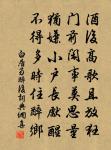 酒後高歌且放狂
門前閒事莫思量
猶嫌小戶長先醒
不得多時住醉鄉
白居易醉後詩與佩玉